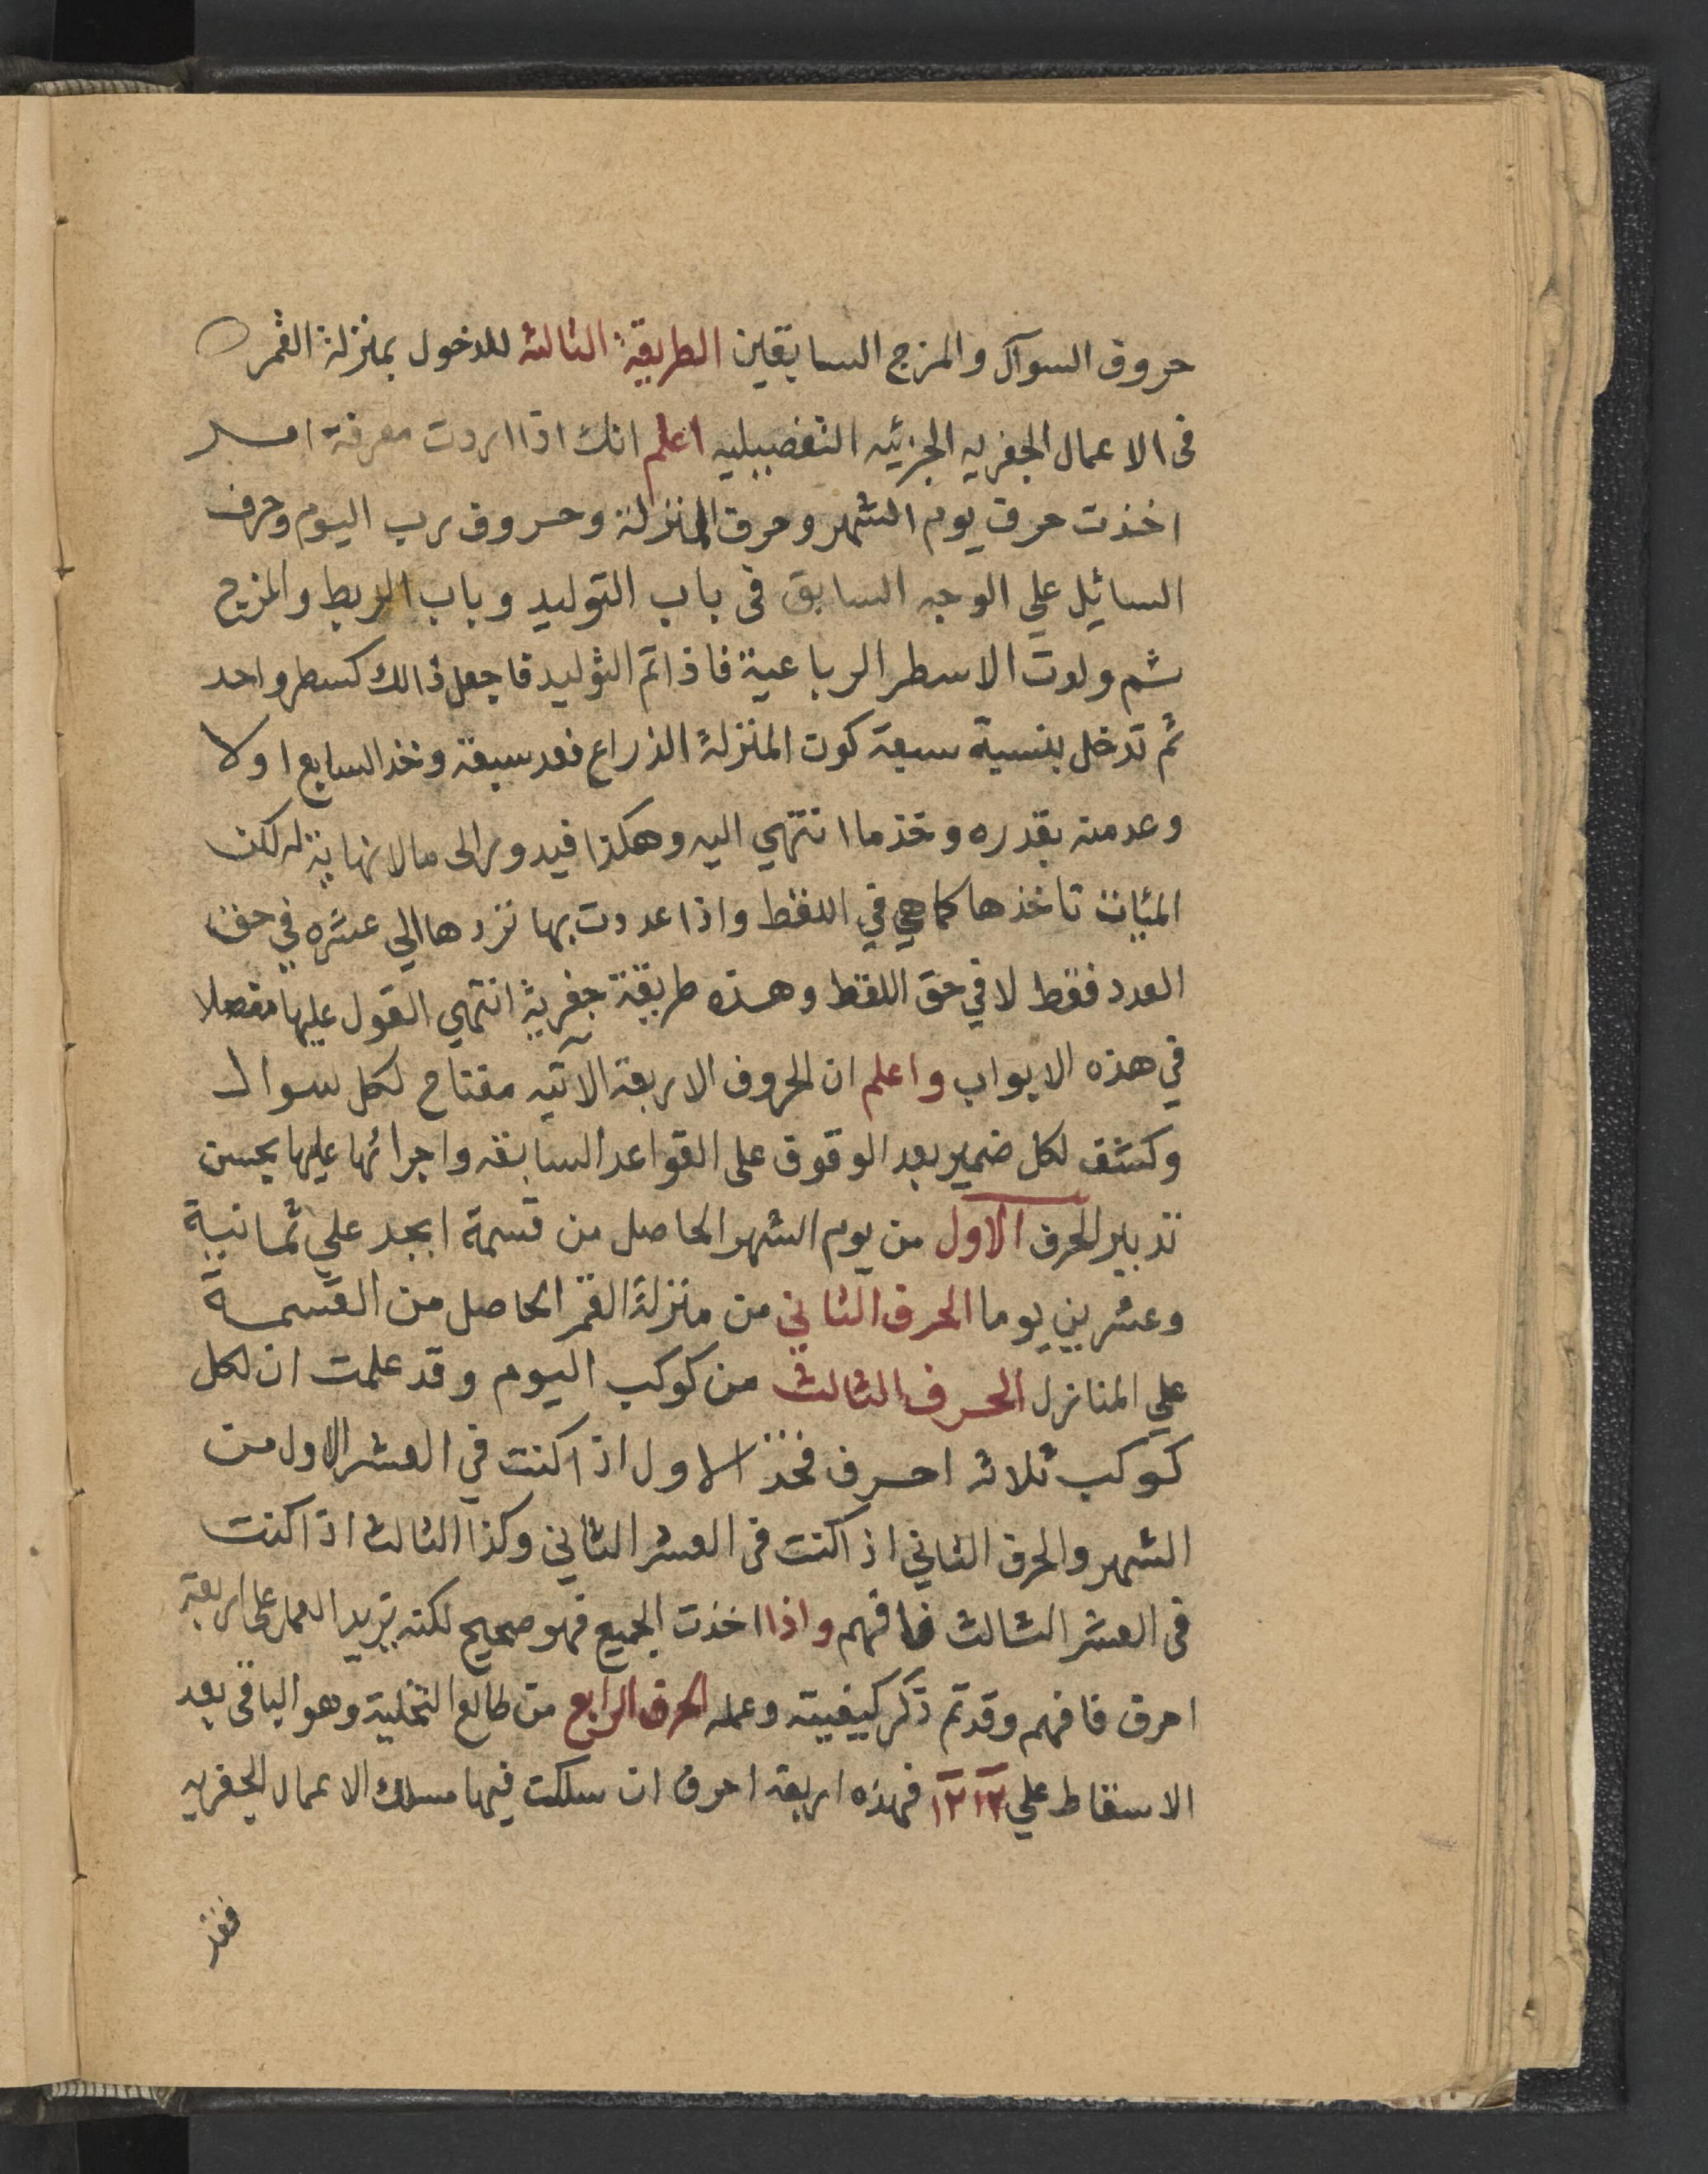 حروف السوآل والمزج السابقين الطريقة الثالثه للدخول بمنزلة القمر
فى الاعمال الجفريه الجزئيه التفصيليه اعلم انك اذا اردت معرفة امر
اخذت حرف يوم الشهر وحرف المنزلة وحروف رب اليوم وحرف
السائيل علي الوجه السابق فى باب التوليد وباب الربط والمزج
ثم ولدت الاسطر الرباعية فاذا تم التوليد فاجعل ذالك كسطر واحد
ثم تدخل بنسبة سبعة كون المنزلة الذراع فعد سبعة وخذ السابع اولا
وعد منه بقدره وخذ ما انتهي اليه وهكذا فيدور الى ما لانهاية له لكن
المئيات تاخذها كما هي في اللفظ واذا عددت بها تردها الي عشره في حق
العدد فقط لا في حق اللفظ وهذه طريقة جفرية انتهي القول عليها مفصلا
في هذه الابواب واعلم ان الحروف الاربعة الآتيه مفتاح لكل سوال
وكشف لكل ضمير بعد الوقوف على القواعد السابقه واجرائها عليها بحسن
تدبير الحرف الاول من يوم الشهر الحاصل من قسمة ابجد علي ثمانية
وعشرين يوما الحرف الثاني من منزلة القمر الحاصل من القسمة
علي المنازل الحرف الثالث من كوكب اليوم وقد علمت ان لكل
كوكب ثلاثه احرف فخذ الاول اذا كنت في العشر الاول من
الشهر والحرف الثاني اذا كنت فى العشر الثاني وكذا الثالث اذا كنت
فى العشر الثالث فافهم واذا اخذت الجميع فهو صحيح لكنه يزيد العمل على اربعة
احرف فافهم وقد تم ذكر كيفيته وعمله الحرف الرابع من طالع التخلية وهو الباقى بعد
الاسقاط علي ١٢ ١٢ فهذه اربعة احرف ان سلكت فيها مسلك الاعمال الجفريه
فقد